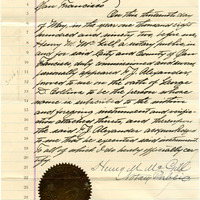 San Francisco
On this thirteenth day
of May, in the year one thousand eight
hundred and ninety two, before me,
Henry M. McGill, a notary public, in
and for said City and County of San
Francisco, duly commissioned and sworn,
personally appeared H. J. Alexander,
proved to me on the oath of
D. Collins to be the person whose
name is subscribed to the within
and foregoing instrument and
attached thereto, and thereupon
the said H. J. Alexander acknowledged
to me that he executed said instrument
all of which I do hereby officially
Henry M. McGill
Notary Public